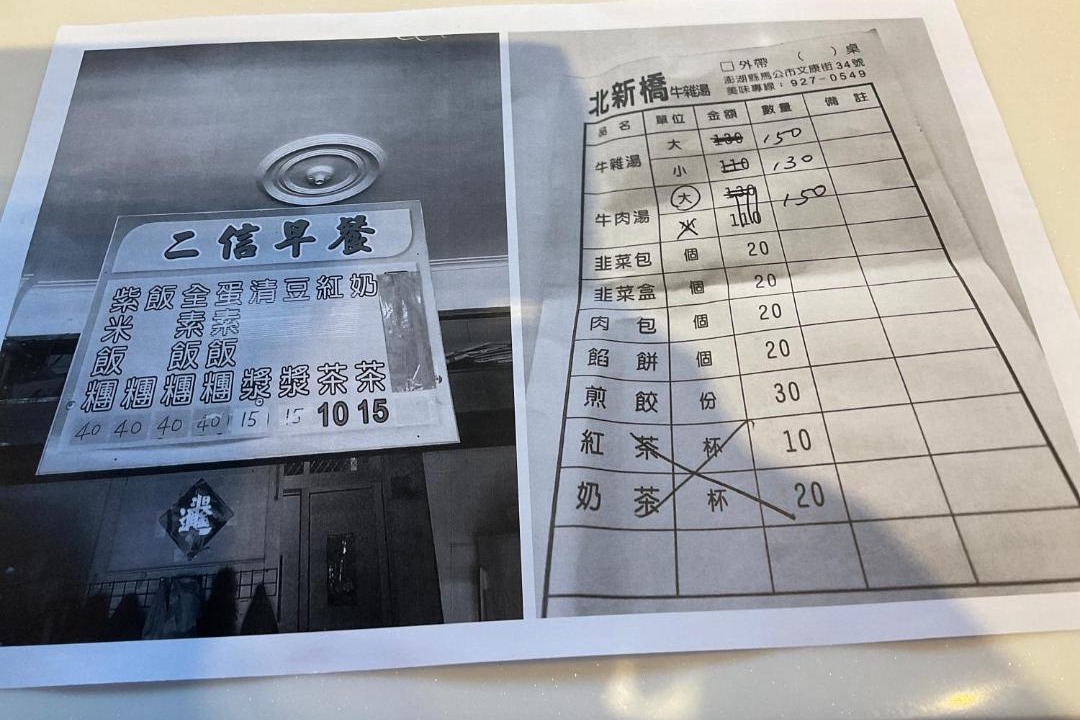 二信早餐
紫米飯糰 40
飯糰 40
全素飯糰 40
蛋素飯糰 40
清漿 15
豆漿 15
紅茶 10
奶茶 15
北新橋牛雜湯
□外帶 ( )桌
澎湖縣馬公市文康街34號
美味專線:927-0549
品名 單位 金額 數量 備註
牛雜湯 大 130 150
小 110 130
牛肉湯 大 130 150
小 110
韭菜包 個 20
韭菜盒 個 20
肉包 個 20
餡餅 個 20
煎餃 份 30
紅茶 杯 10
奶茶 杯 20